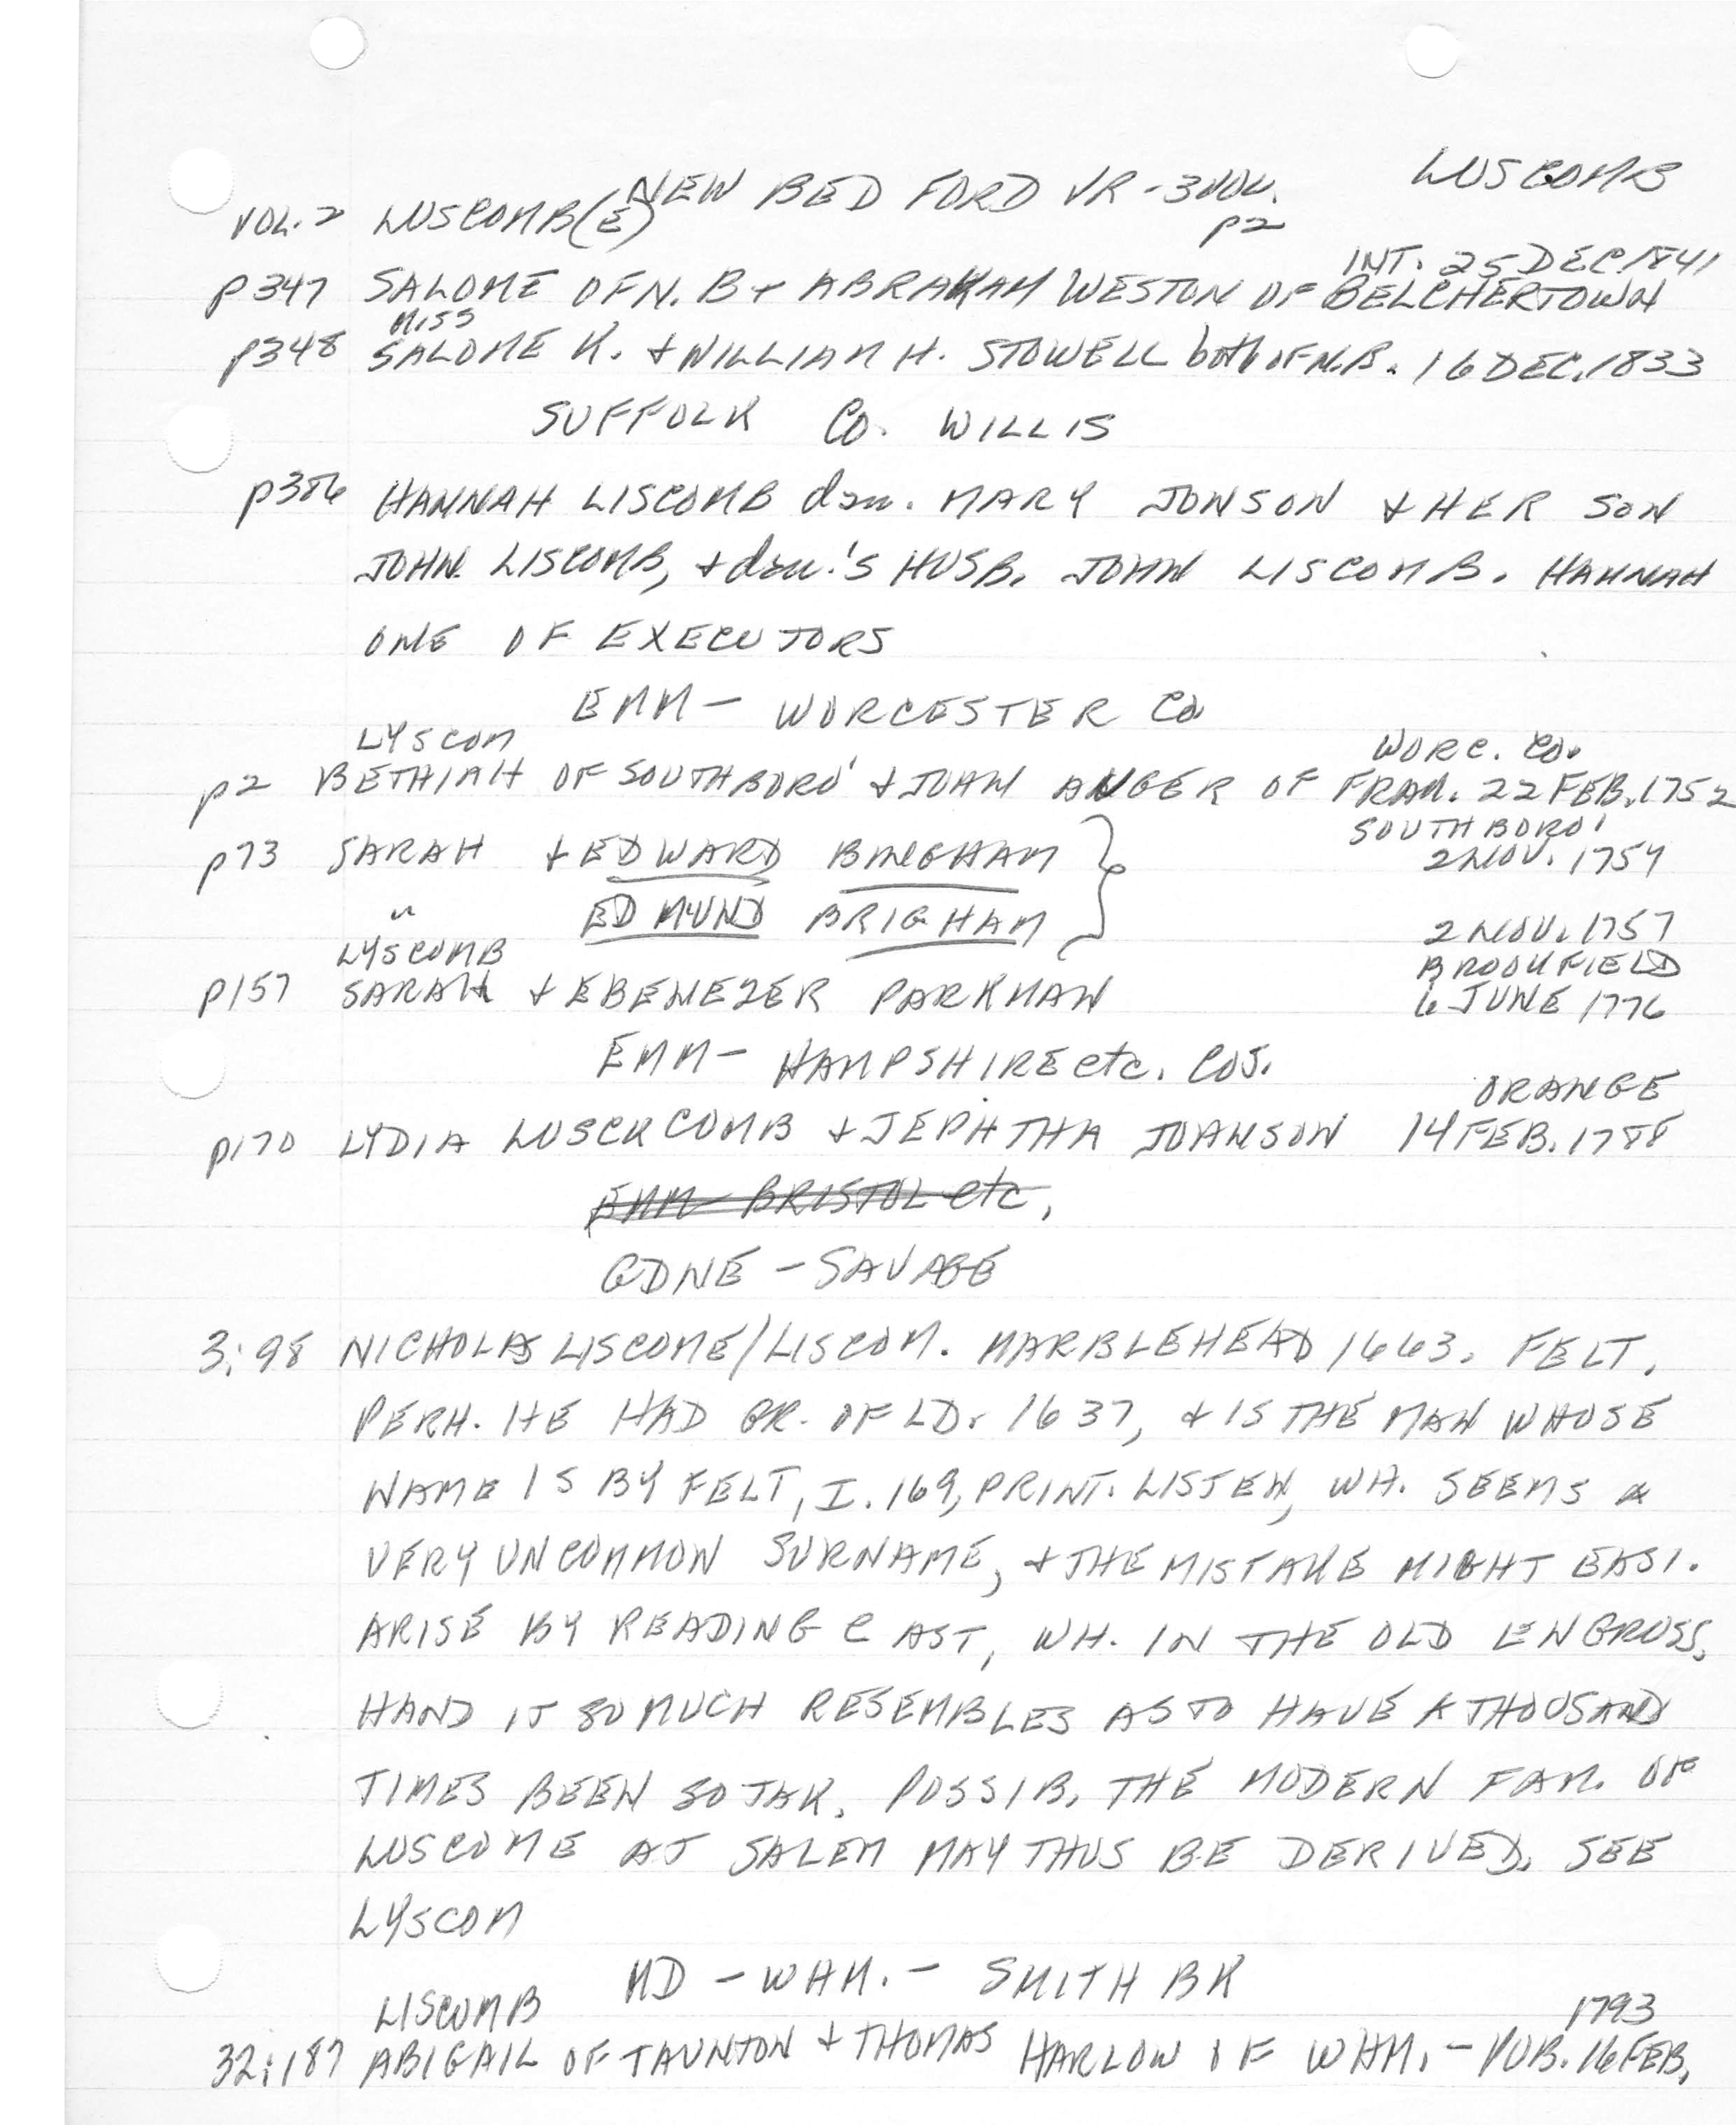 LUSCOMB
NEW BEDFORD VR - 3 VOL.
VOL. 2 LUSCOMB(E) p2
INT. 25 DEC. 1841
p347 SALOME OF N. B + ABRAHAM WESTON OF BELCHERTOWN
MISS
p348 SALOME K. + WILLIAM H. STOWELL both OF N.B. 16 DEC. 1833
SUFFOLK CO. WILLS
p386 HANNAH LISCOMB dau. MARY JONSON + HER SON
JOHN LISCOMB, + dau.'s HUSB. JOHN LISCOMB. HANNAH
ONE OF EXECUTORS
EMM - WORCESTER CO
LYSCOM WORC. CO.
p2 BETHIAH OF SOUTHBORO' + JOHN ANGER OF FRAM. 22 FEB. 1752
SOUTHBORO'
p73 SARAH + EDWARD BINGHAM 2 NOV. 1757
" EDMUND BRIGHAM 2 NOV. 1757
LYSCOMB BROOKFIELD
p157 SARAH + EBENEZER PARKMAN 6 JUNE 1776
EMM - HAMPSHIRE etc. COS.
ORANGE
p170 LYDIA LUSCKCOMB + JEPHTHA JOHNSON 14 FEB. 1788
EMM - BRISTOL etc.
GDNE - SAVAGE
3:98 NICHOLAS LISCOME/LISCOM. MARBLEHEAD 1663. FELT.
PERH. HE HAD GR. OF LD. 1637, + IS THE MAN WHOSE
NAME IS BY FELT, I. 169, PRINT. LISTEN, WH. SEEMS A
VERY UNCOMMON SURNAME, + THE MISTAKE MIGHT EASI.
ARISE BY READING C AS T, WH. IN THE OLD ENGROSS.
HAND IT SO MUCH RESEMBLES AS TO HAVE A THOUSAND
TIMES BEEN SO TAK. POSSIB. THE MODERN FAM. OF
LUSCOME AT SALEM MAY THUS BE DERIVED. SEE
LYSCOM
MD - WHM. - SMITH BK
LISCOMB 1793
32:187 ABIGAIL OF TAUNTON + THOMAS HARLOW OF WHM. - PUB. 16 FEB.